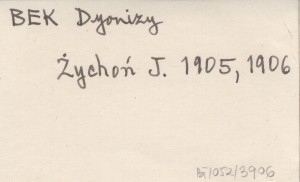 BEK Dyonizy
Żychoń J. 1905, 1906
/1052/3906